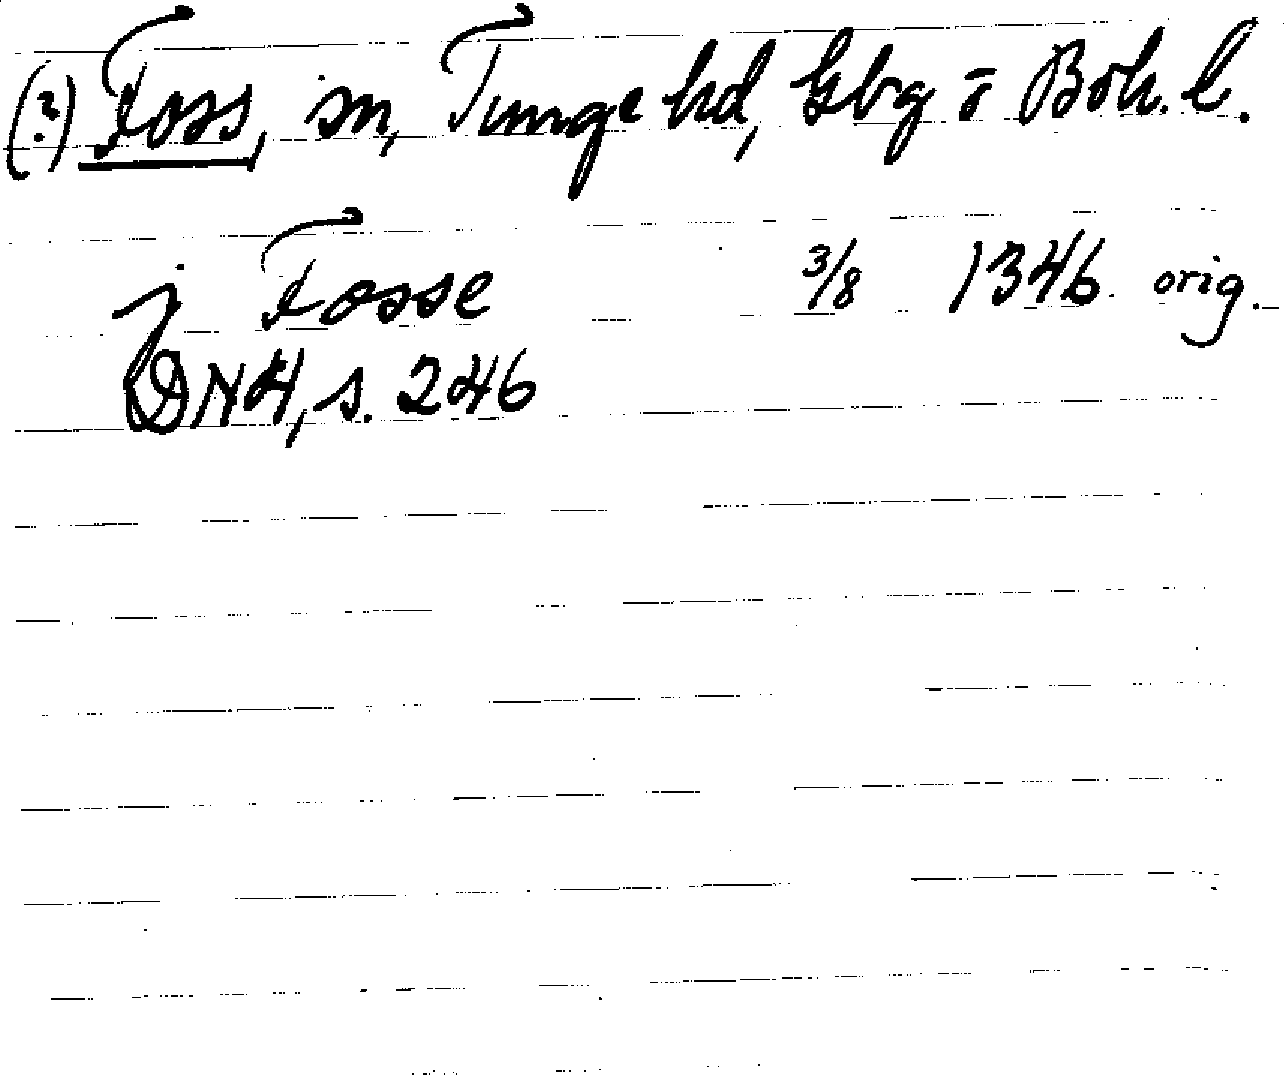 (?) Foss, sn, Tunge hd, Gbg o Boh. l.
j Fosse 3/8 1346 orig.
DN 4, s. 246